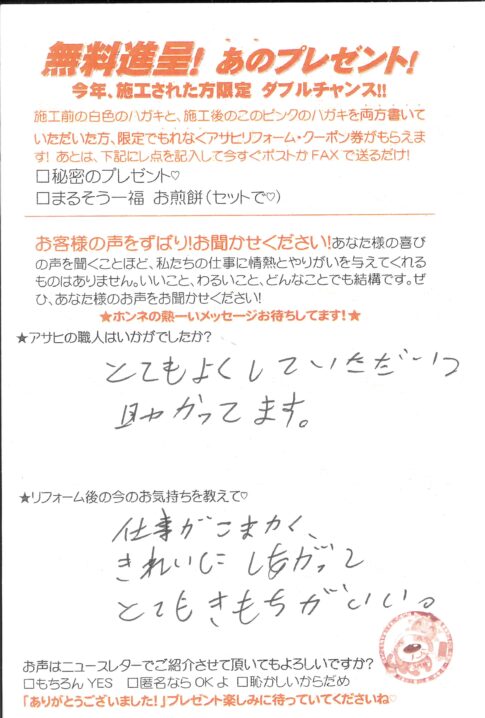 無料進呈! あのプレゼント!
今年、施工された方限定 ダブルチャンス!!
施工前の白色のハガキと、施工後のこのピンクのハガキを両方書いて
いただいた方、限定でもれなくアサヒリフォーム・クーポン券がもらえま
す! あとは、下記にレ点を記入して今すぐポストかFAXで送るだけ!
□秘密のプレゼント♡
□まるそう一福 お煎餅(セットで♡)
お客様の声をずばり!お聞かせください!あなた様の喜び
の声を聞くことほど、私たちの仕事に情熱とやりがいを与えてくれる
ものはありません。いいこと、わるいこと、どんなことでも結構です。ぜ
ひ、あなた様のお声をお聞かせください!
★ホンネの熱ーいメッセージお待ちしてます!★
★アサヒの職人はいかがでしたか?
とてもよくしていただいて
助かってます。
★リフォーム後の今のお気持ちを教えて♡
仕事がこまかく、
きれいに しあがって
とても きもちが いい。
お声はニュースレターでご紹介させて頂いてもよろしいですか?
□もちろんYES □匿名ならOKよ □恥かしいからだめ
「ありがとうございました!」プレゼント楽しみに待っていてくださいね♡